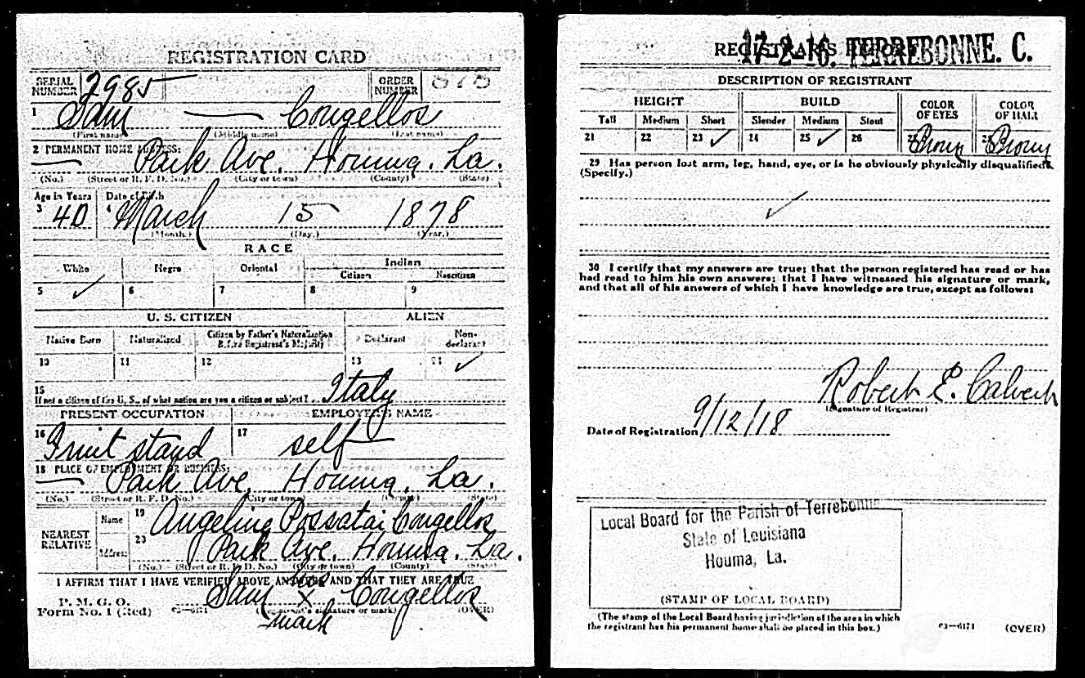 REGISTRATION CARD
SERIAL NUMBER 2985 ORDER NUMBER
1 Sam — Congellos
(First name) (Middle name) (Last name)
2 PERMANENT HOME ADDRESS:
— Park Ave. Houma. La.
(No.) (Street or R. F. D. No.) (City or town) (County) (State)
Age in Years Date of Birth
3 40 4 March 15 1878
(Month.) (Day.) (Year.)
RACE
White Negro Oriental Indian
Citizen Noncitizen
5 ✓ 6 7 8 9
U. S. CITIZEN ALIEN
Native Born Naturalized Citizen by Father's Naturalization Before Registrant's Majority Declarant Non-declarant
10 11 12 13 14 ✓
15 If not a citizen of the U. S., of what nation are you a citizen or subject? Italy
PRESENT OCCUPATION EMPLOYER'S NAME
16 Fruit stand 17 self—
18 PLACE OF EMPLOYMENT OR BUSINESS:
— Park Ave. Houma, La.
(No.) (Street or R. F. D. No.) (City or town) (County) (State)
NEAREST RELATIVE Name 19 Angeline Congellos
Address 20 Park Ave. Houma. La.
(No.) (Street or R. F. D. No.) (City or town) (County) (State)
I AFFIRM THAT I HAVE VERIFIED ABOVE ANSWERS AND THAT THEY ARE TRUE
P. M. G. O.
Form No. 1 (Red) Sam his X mark Congellos
(Registrant's signature or mark) (OVER)
REGISTRAR'S REPORT 17-2-16. TERREBONNE. C.
DESCRIPTION OF REGISTRANT
HEIGHT BUILD COLOR OF EYES COLOR OF HAIR
Tall Medium Short Slender Medium Stout
21 22 23 ✓ 24 25 ✓ 26 27 Brown 28 Brown
29 Has person lost arm, leg, hand, eye, or is he obviously physically disqualified?
(Specify.)
✓
30 I certify that my answers are true; that the person registered has read or has
had read to him his own answers; that I have witnessed his signature or mark,
and that all of his answers of which I have knowledge are true, except as follows:
Robert E. Calvert
(Signature of Registrar)
Date of Registration 9/12/18
Local Board for the Parish of Terrebonne
State of Louisiana
Houma, La.
(STAMP OF LOCAL BOARD)
(The stamp of the Local Board having jurisdiction of the area in which
the registrant has his permanent home shall be placed in this box.)
03—6171 (OVER)